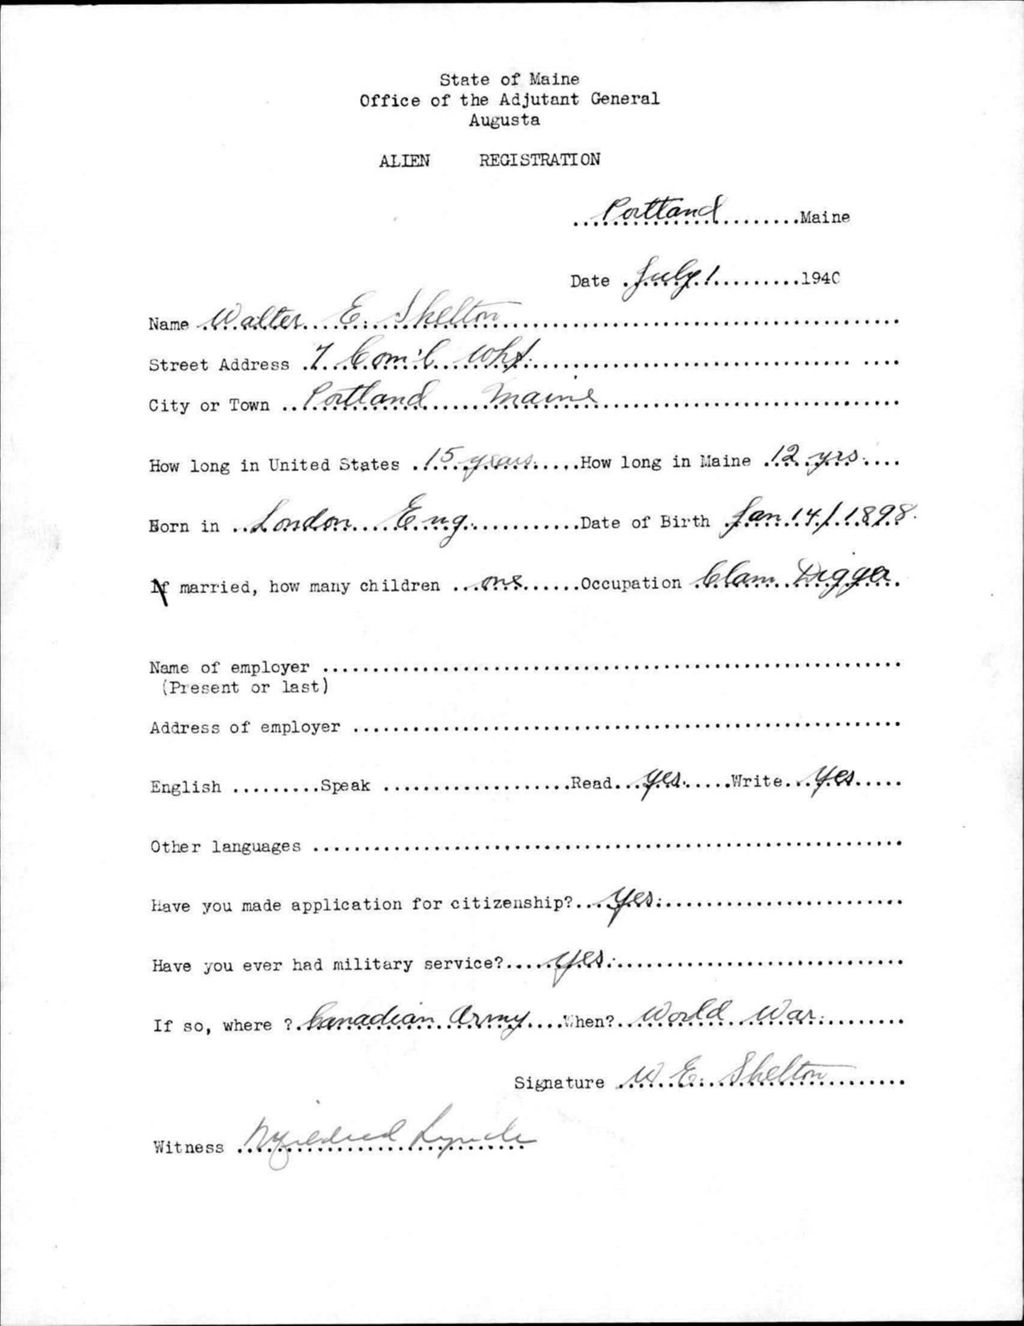 State of Maine
Office of the Adjutant General
Augusta
ALIEN REGISTRATION
Portland Maine
Date July 1 1940
Name Walter E. Shelton
Street Address 7 Com'l Whf.
City or Town Portland Maine
How long in United States 15 years How long in Maine 12 yrs.
Born in London Eng. Date of Birth Jan 14/1898.
If married, how many children one Occupation Clam Digger
Name of employer
(Present or last)
Address of employer
English Speak Read yes. Write yes
Other languages
Have you made application for citizenship? yes.
Have you ever had military service? yes.
If so, where ? Canadian Army When? World War.
Signature W. E. Shelton
Witness Mildred Lynch